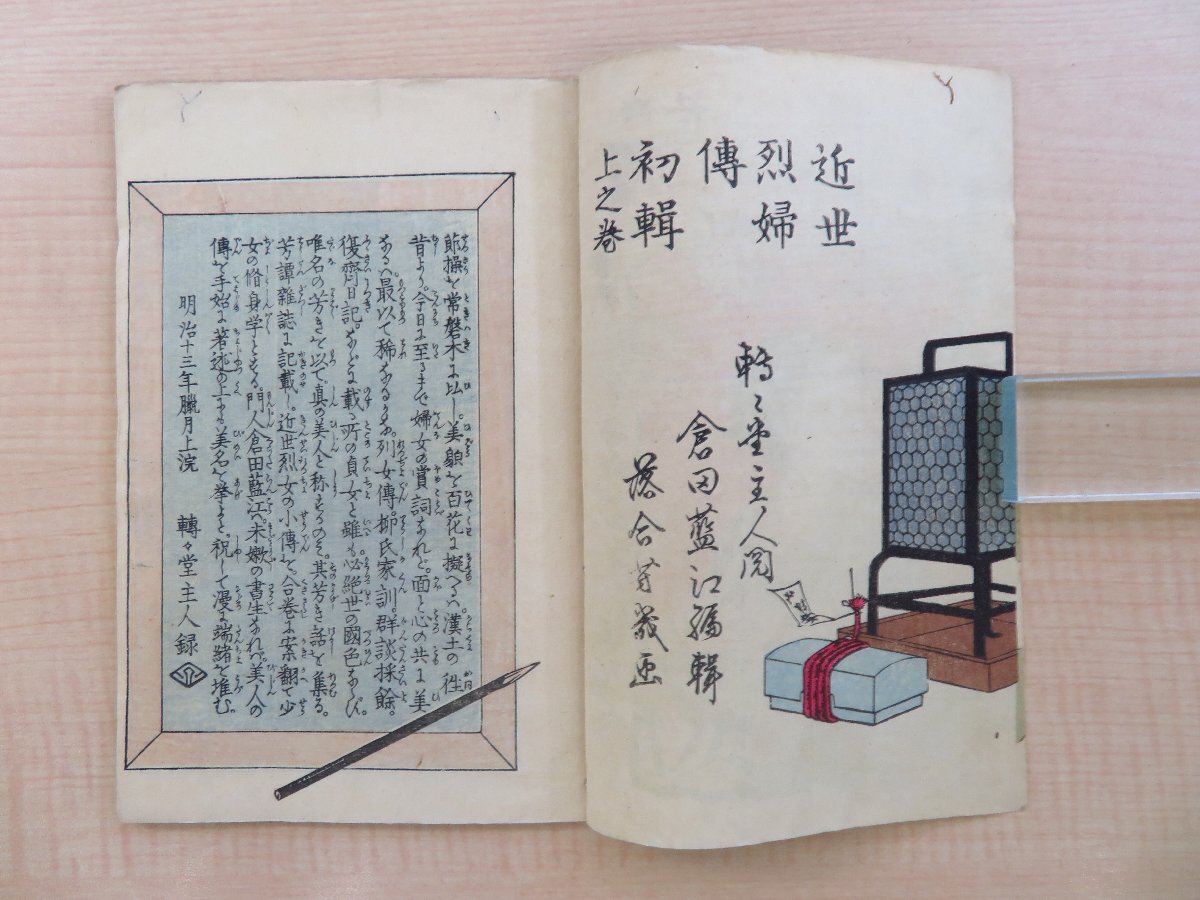 近世
烈婦
傳
初輯
上之巻
轉々堂主人閲
倉田藍江編輯
落合芳幾画
節操を常磐木に比し。美貌を百花に擬へるハ。漢土の往
昔より。今日に至るまで婦女の賞詞なれど。面と心の共に美
なるハ。最以て稀なるかな。列女傳。柳氏家訓。群談採餘。
復齊日記。などに載る所の貞女と雖も。必絶世の國色ならず。
唯名の芳きを以て。真の美人と称するのミ。其芳き話を集る。
芳譚雜誌に記載し。近世烈女の小傳を。合巻に案翻て。少
女の脩身学ともする。門人倉田藍江ハ。未嫩の書生なれバ。美人の
傳を手始に。著述の上にも。美名を挙よと。祝して漫に端緒を推む。
明治十三年臘月上浣 轉々堂主人録